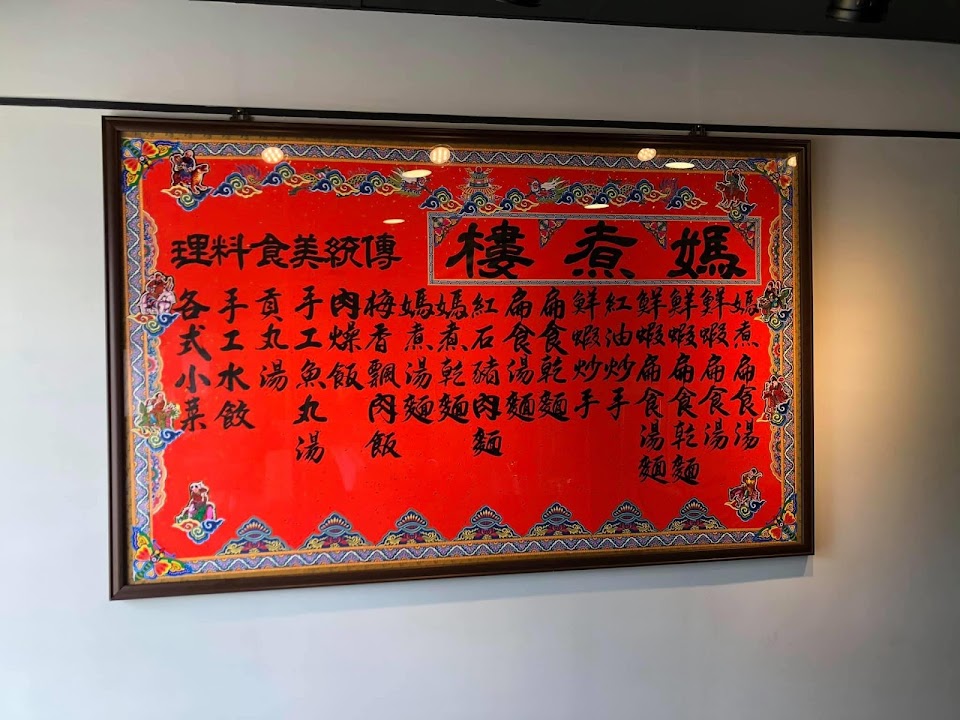 媽煮樓
傳統美食料理
媽煮扁食湯
鮮蝦扁食湯
鮮蝦扁食乾麵
鮮蝦扁食湯麵
紅油炒手
鮮蝦炒手
扁食乾麵
扁食湯麵
紅石豬肉麵
媽煮乾麵
媽煮湯麵
梅香飄肉飯
肉燥飯
手工魚丸湯
貢丸湯
手工水餃
各式小菜